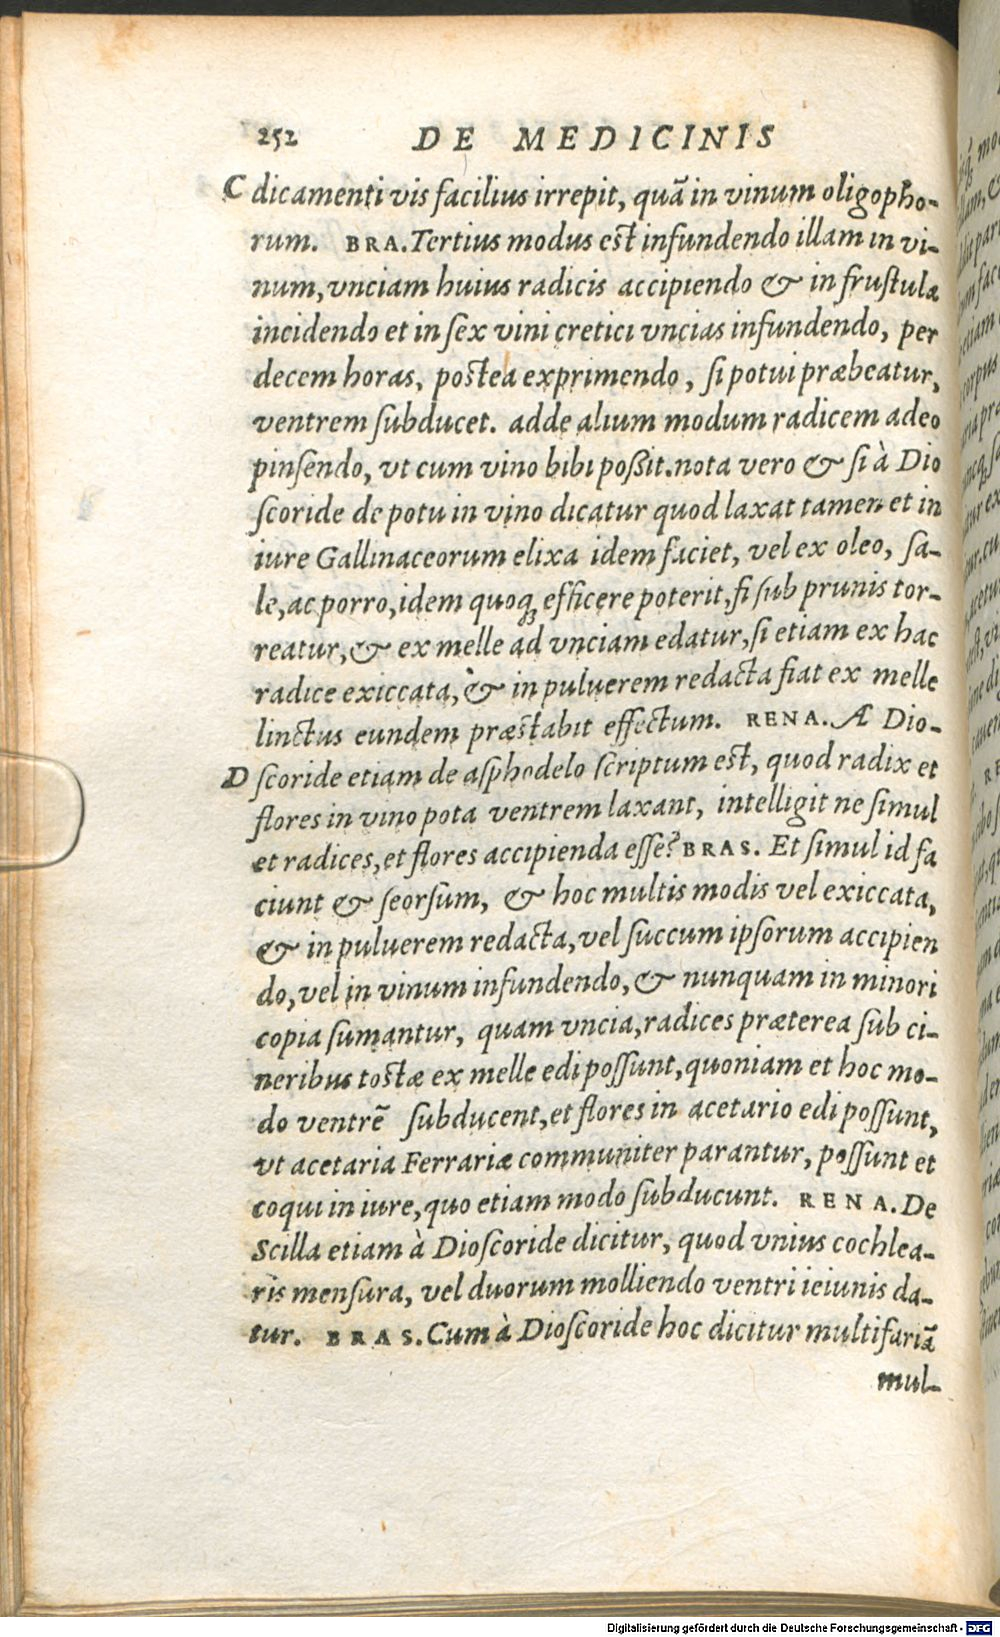 252 DE MEDICINIS
C dicamenti vis facilius irrepit, quā in vinum oligopho-
rum. BRA. Tertius modus est infundendo illam in vi-
num, vnciam huius radicis accipiendo & in frustula
incidendo et in sex vini cretici vncias infundendo, per
decem horas, postea exprimendo, si potui præbeatur,
ventrem subducet. adde alium modum radicem adeo
pinsendo, vt cum vino bibi poßit. nota vero & si à Dio
scoride de potu in vino dicatur quod laxat tamen et in
iure Gallinaceorum elixa idem faciet, vel ex oleo, sa-
le, ac porro, idem quoq; efficere poterit, si sub prunis tor-
reatur, & ex melle ad vnciam edatur, si etiam ex hac
radice exiccata, & in puluerem redacta fiat ex melle
linctus eundem præstabit effectum. RENA. A Dio-
D scoride etiam de asphodelo scriptum est, quod radix et
flores in vino pota ventrem laxant, intelligit ne simul
et radices, et flores accipienda esse? BRAS. Et simul id fa
ciunt & seorsum, & hoc multis modis vel exiccata,
& in puluerem redacta, vel succum ipsorum accipien
do, vel in vinum infundendo, & nunquam in minori
copia sumantur, quam vncia, radices præterea sub ci-
neribus tostæ ex melle edi possunt, quoniam et hoc mo-
do ventrē subducent, et flores in acetario edi possunt,
vt acetaria Ferrariæ communiter parantur, possunt et
coqui in iure, quo etiam modo subducunt. RENA. De
Scilla etiam à Dioscoride dicitur, quod vnius cochlea-
ris mensura, vel duorum molliendo ventri ieiunis da-
tur. BRAS. Cum à Dioscoride hoc dicitur multifariā
mul-
Digitalisierung gefördert durch die Deutsche Forschungsgemeinschaft - DFG